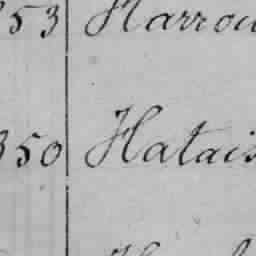 53 Harrou
350 Hatais